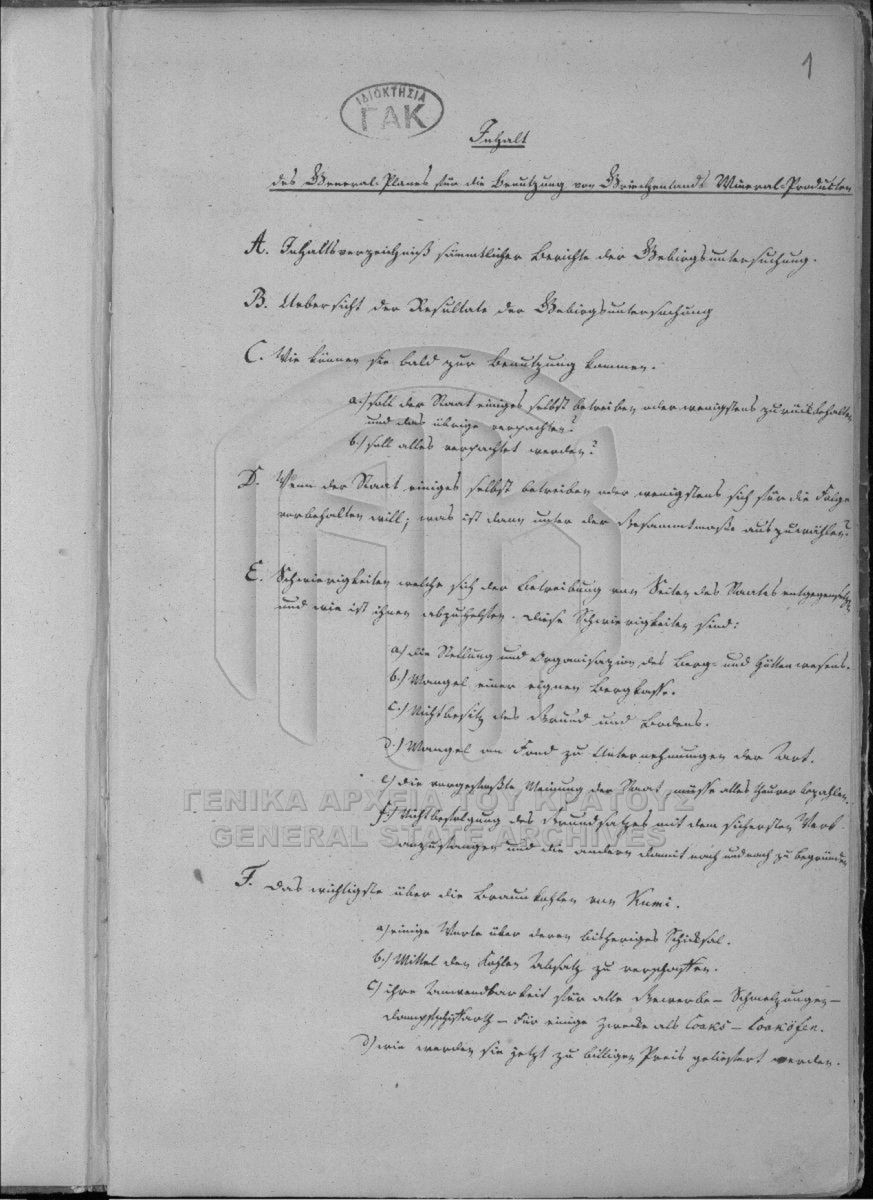 1
ΙΔΙΟΚΤΗΣΙΑ
ΓΑΚ
Inhalt
des General-Planes für die Benutzung von Griechenlands Mineral-Producten
A. Inhaltsverzeichniß sämmtlicher Berichte der Gebirgsuntersuchung.
B. Uebersicht der Resultate der Gebirgsuntersuchung
C. Wie können sie bald zur Benutzung kommen.
a.) soll der Staat einiges selbst betreiben oder wenigstens zurückbehalten
und das übrige verpachten?
b.) soll alles verpachtet werden?
D. Wenn der Staat einiges selbst betreiben oder wenigstens sich für die Folge
vorbehalten will; was ist dann unter der Gesammtmaße auszuwählen?
E. Schwierigkeiten welche sich der Betreibung von Seiten des Staates entgegensetzen
und wie ist ihnen abzuhelfen. Diese Schwierigkeiten sind:
a) die Stellung und Organisazion des Berg- und Hüttenwesens.
b.) Mangel einer eignen Bergkasse.
c.) Nichtbesitz des Grund und Bodens.
d.) Mangel an Fond zu Unternehmungen der Art.
e) die vorgefaßte Meinung der Staat müsse alles theurer bezahlen.
f.) Nichtbefolgung des Grundsatzes mit dem sichersten Werk
anzufangen und die andern damit nach und nach zu begründen
F. Das wichtigste über die Braunkohlen von Kumi.
a) einige Worte über deren bisheriges Schicksal.
b.) Mittel den Kohlen Absatz zu verschaffen.
c) ihre Anwendbarkeit für alle Gewerbe – Schmelzungen –
Dampfschiffarth – für einige Zwecke als Coaks – Coaköfen.
d) wie werden sie jetzt zu billigen Preis geliefert werden.
ΓΕΝΙΚΑ ΑΡΧΕΙΑ ΤΟΥ ΚΡΑΤΟΥΣ
GENERAL STATE ARCHIVES